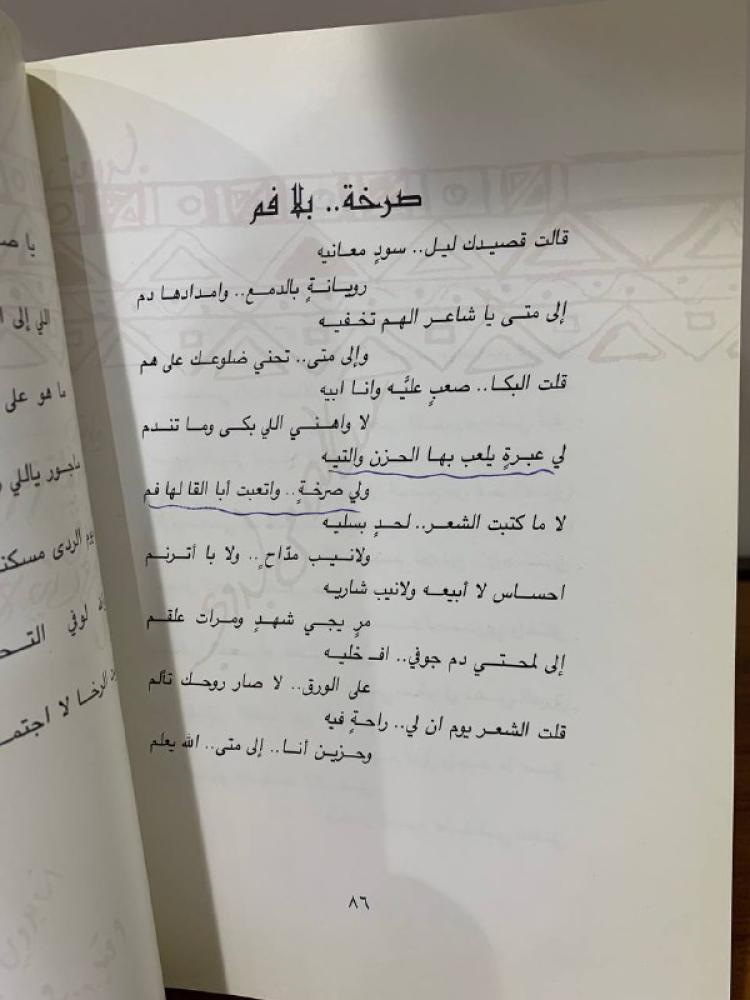 صرخة.. بلا فم
قالت قصيدك ليل.. سودٍ معانيه
رويانةٍ بالدمع.. وامدادها دم
إلى متى يا شاعر الهم تخفيه
وإلى متى.. تحني ضلوعك على هم
قلت البكا.. صعبٍ عليَّه وانا ابيه
لا واهني اللي بكى وما تندم
لي عبرةٍ يلعب بها الحزن والتيه
ولي صرخةٍ.. واتعبت أبا القا لها فم
لا ما كتبت الشعر.. لحدٍ بسليه
ولانيب مدّاحٍ.. ولا با أترنم
احساس لا أبيعه ولانيب شاريه
مرٍ يجي شهدٍ ومرات علقم
إلى لمحتي دم جوفي.. اف خليه
على الورق.. لا صار روحك تألم
قلت الشعر يوم ان لي.. راحةٍ فيه
وحزين أنا.. إلى متى.. الله يعلم
٨٦
يا
اللي إلى
ما هو على
ماجور ياللي
يوم الردى
لوفي
الرخا لا